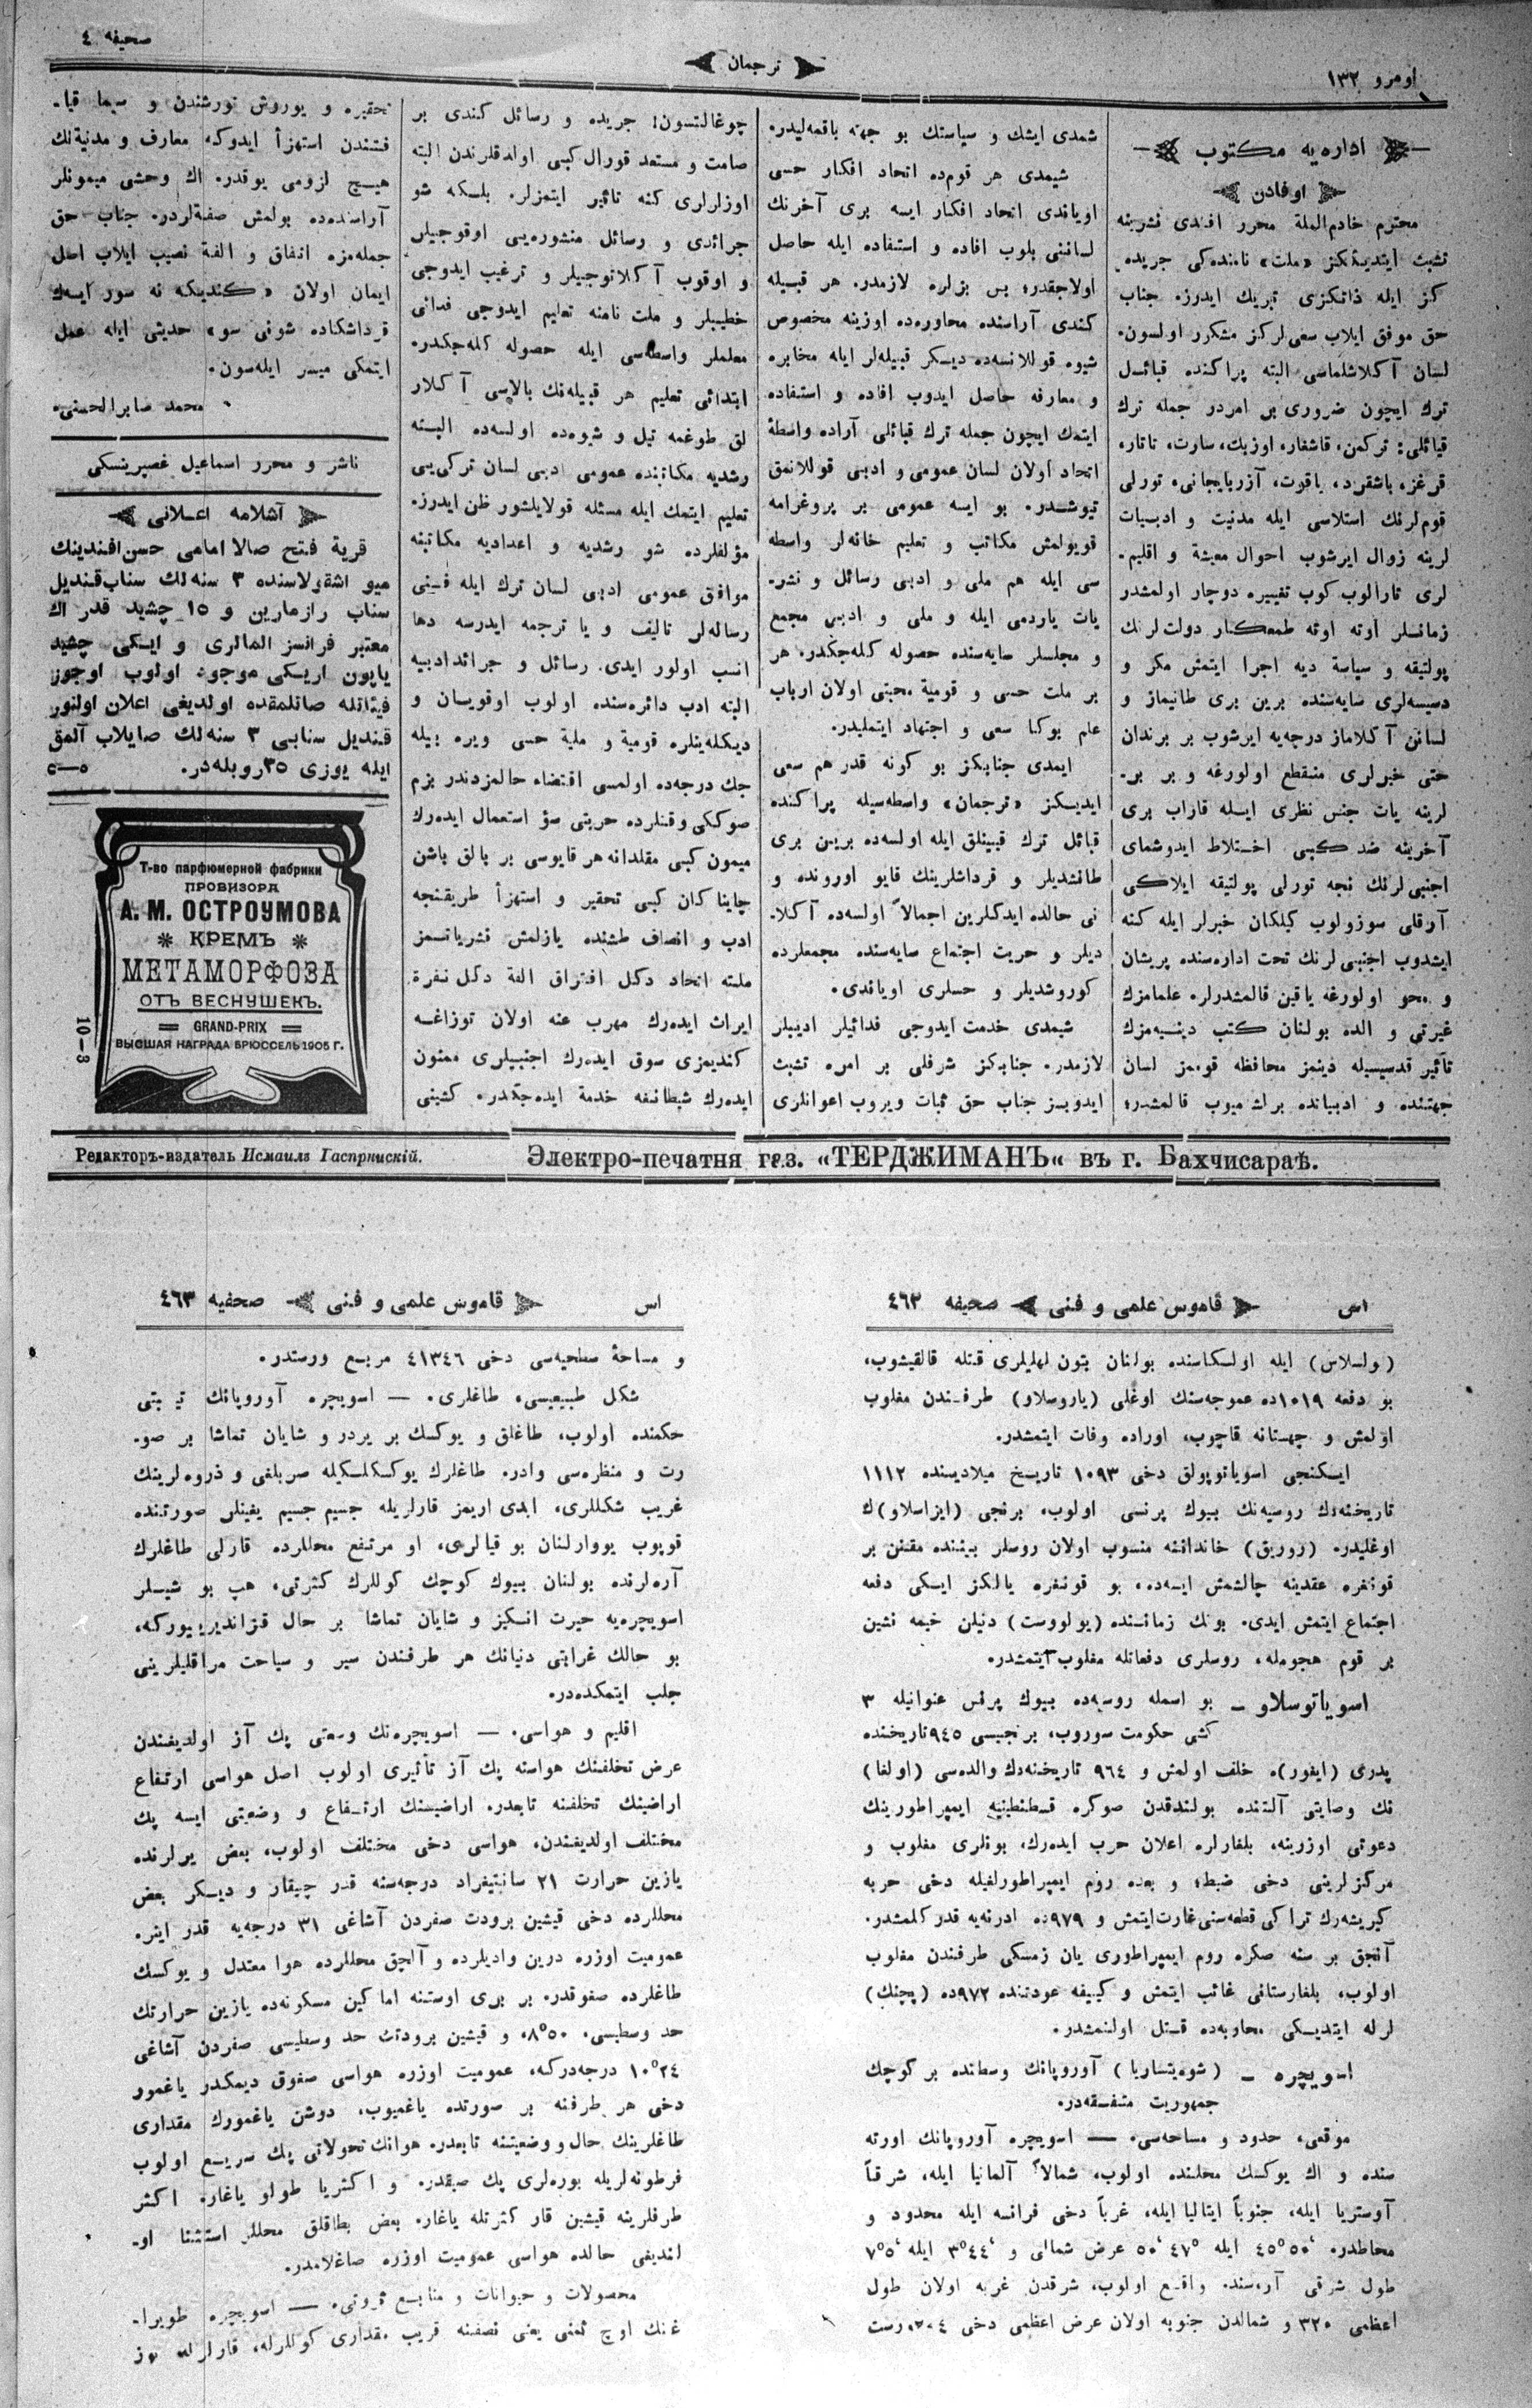 صحيفه ٤
ترجمان
نومرو ١٣٢
اداره‌يه مكتوب
اوفادن
محترم خادم‌الملة محرر افندى نشرينه
تشبث ايتديڭكز «ملت» نامنده‌كى جريده‌
كز ايله ذاتكزى تبريك ايدرز. جناب
حق موفق ايلاب سعى‌لركز مشكور اولسون.
لسان آكلاشلماسى البته پراكنده قبائل
ترك ايچون ضرورى بر امردر جمله ترك
قبائلى: تركمن، قاشغار، اوزبك، سارت، تاتار،
قرغز، باشقرد، ياقوت، آزربايجانى، تورلى
قوم‌لرنك استلاسى ايله مدنيت و ادبيات
لرينه زوال ايرشوب احوال معيشة و اقليم‌-
لرى تارالوب كوب تغييره دوچار اولمشدر
زمانسلر اوته اوته طمعكار دولت‌لرنك
پولتيقه و سياسة ديه اجرا ايتمش مكر و
دسيسه‌لرى سايه‌سنده برين برى طانيماز و
لسانن آكلاماز درجه‌يه ايرشوب بر برندان
حتى خبرلرى منقطع اولورغه و بر بر-
لرينه يات جنس نظرى ايله قاراب برى
آخرينه ضد كبى اختلاط ايدوشماى
اجنبى‌لرنك نچه تورلى پولتيقه ايلاكى
آرقلى سوزولوب كيلكان خبرلر ايله كنه
ايشدوب اجنبى‌لرنك تحت اداره‌سنده پريشان
و محو اولورغه ياقين قالمشدرلر. علمامزك
غيرتى و الده بولنان كتب دينيه‌مزك
تأثير قدسيسيله دينمز محافظه قومز لسان
جهتنده و ادبياتده برلشميوب قالمشدر؛
شمدى ايشك و سياستك بو جهته باقمه‌ليدر.
شيمدى هر قوم‌ده اتحاد افكار حسى
اوياندى اتحاد افكار ايسه برى آخرنك
لساننى بلوب افاده و استفاده ايله حاصل
اولاجقدر؛ بس بزلره لازمدر. هر قبيله
كندى آراسنده محاوره‌ده اوزينه مخصوص
شيوه قوللانسه‌ده ديكر قبيله‌لر ايله مخابره
و معارفه حاصل ايدوب افاده و استفاده
ايتمك ايچون جمله ترك قبائلى آراده واسطۀ
اتحاد اولان لسان عمومى و ادبى قوللانمق
تيوشدر. بو ايسه عمومى بر پروغرامه
قويولمش مكاتب و تعليم خانه‌لر واسطه
سى ايله هم ملى و ادبى رسائل و نشر-
يات ياردمى ايله و ملى و ادبى مجمع
و مجلسلر سايه‌سنده حصوله كله‌جكدر. هر
بر ملت حسى و قومية محبتى اولان ارباب
عام بوكا سعى و اجتهاد ايتمليدر.
ايمدى جنابكز بو كونه قدر هم سعى
ايديكز «ترجمان» واسطه‌سيله پراكنده
قبائل ترك قبينلق ايله اولسه‌ده بريىن برى
طانشديلر و قرداشلرينك قايو اورونده و
نى حالده ايدكلرين اجمالاً اولسه‌ده آكلا-
ديلر و حريت اجتماع سايه‌سنده مجمعلرده
كوروشديلر و حسلرى اوياندى.
شيمدى خدمت ايدوجى فدائيلر اديبلر
لازمدر. جنابكز شرفلى بر امره تشبث
ايدوبسز جناب حق ثبات ويروب اعوانلرى
چوغالتسون! جريده و رسائل كندى بر
صامت و مستعد قورال كبى اولدقلرندن البته
اوزلرلرى كنه تاثير ايتمزلر. بلكه شو
جرائدى و رسائل منشوره‌يى اوقوجيلر
و اوقوب آكلاتوجيلر و ترغيب ايدوجى
خطيبلر و ملت نامنه تعليم ايدوجى فدائى
معلملر واسطه‌سى ايله حصوله كله‌جكدر.
ابتدائى تعليم هر قبيله‌نك بالاسى آكلار
لق طوغمه تيل و شيوه‌ده اولسه‌ده البته
رشديه مكاتبنده عمومى ادبى لسان تركى‌يى
تعليم ايتمك ايله مسئله قولايلشور ظن ايدرز.
مؤلفلرده شو رشديه و اعداديه مكاتبنه
موافق عمومى ادبى لسان ترك ايله فنى
رساله‌لر تاليف و يا ترجمه ايدرسه دها
انسب اولور ايدى. رسائل و جرائدادبيه
البته ادب دائره‌سنده اولوب اوقويسان و
ديكله‌ينلره قومية و ملية حسى ويره بيله
جك درجه‌ده اولمسى اقتضاء حالمزدندر بزم
صوكى وقتلرده حريتى سؤ استعمال ايده‌رك
ميمون كبى مقلدانه هر قايوسى بر يالق باشن
چايناكان كبى تحقير و استهزأ طريقنجه
ادب و انصاف طشنده يازلمش نشرياتسمز
ملته اتحاد دكل افتراق الفة دكل نفرة
ايراث ايده‌رك مهرب عنه اولان توزاغه
كنديمزى سوق ايده‌رك اجنبيلرى ممنون
ايده‌رك شيطانغه خدمة ايده‌جكدر. كشينى
تحقيره و يوروش تورشندن و سيما قيا-
فتندن استهزأ ايدوكه معارف و مدنيةنك
هيچ لزومى يوقدر. اك وحشى ميمونلر
آراسنده‌ده بولمش صفةلردر. جناب حق
جمله‌مزه اتفاق و الفة نصيب ايلاب اهل
ايمان اولان «كنديكه نه سور ايسه‌ك
قرداشكاده شونى سو» حديثى ايله عمل
ايتمكى ميسر ايله‌سون.
محمد صابرالحسنى.
ناشر و محرر اسماعيل غصپرينسكى
آشلامه اعلانى
قرية فتح صالا امامى حسن‌افندينك
ميو اشقولاسنده ٣ سنه‌لك سناب‌قنديل
سناب رازمارين و ١٥ چشيد قدر اك
معتبر فرانسز المالرى و ايكى چشيد
ياپون اريكى موجود اولوب اوجوز
فيئاتله صاتلمقده اولديغى اعلان اولنور
قنديل سنابى ٣ سنه‌لك صايلاب آلمق
ايله يوزى ٣٥ روبله‌در. ٥—٥
Т-во парфюмерной фабрики
ПРОВИЗОРА
А. М. ОСТРОУМОВА
КРЕМЪ
МЕТАМОРФОЗА
ОТЪ ВЕСНУШЕКЪ.
GRAND-PRIX
ВЫСШАЯ НАГРАДА БРЮССЕЛЬ 1905 Г.
10—3
Редакторъ-издатель Исмаилъ Гаспринскій.
Электро-печатня газ. «ТЕРДЖИМАНЪ» въ г. Бахчисараѣ.
اس قاموس علمى و فنى صحيفه ٤٦٢
(ولسلاس) ايله اولسكاسنده بولنان بتون لهليلرى قتله قالقيشوب،
بو دفعه ١٠١٩ده عموجه‌سنك اوغلى (ياروسلاو) طرفندن مغلوب
اولمش و چهستانه قاچوب، اوراده وفات ايتمشدر.
ايكنجى اسوياتوپولق دخى ١٠٩٣ تاريخ ميلاديسنده ١١١٢
تاريخنه‌دك روسيه‌نك بيوك پرنسى اولوب، برنجى (ايزاسلاو)ك
اوغليدر. (روريق) خاندانه منسوب اولان روسلر بيننده مقنن بر
قونغره عقدينه چالشمش ايسه‌ده، بو قونغره يالكز ايكى دفعه
اجتماع ايتمش ايدى. بونك زمانسنده (پولووست) دنيلن خيمه نشين
بر قوم هجومله، روسلرى دفعاتله مغلوب ايتمشدر.
اسوياتوسلاو — بو اسمله روسيه‌ده بيوك پرنس عنوانيله ٣
كشى حكومت سوروب، برنجيسى ٩٤٥ تاريخنده
پدرى (ايغور)ه خلف اولمش و ٩٦٤ تاريخنه‌دك والده‌سى (اولغا)
نك وصايتى آلتنده بولندقدن صوكره قسطنطينيه ايمپراطورينك
دعوتى اوزرينه، بلغارلره اعلان حرب ايده‌رك، بونلرى مغلوب و
مركزلرينى دخى ضبط؛ و بعده روم ايمپراطورلغيله دخى حربه
كيريشه‌رك تراكى قطعه‌سنى غارت‌ايتمش و ٩٧٩ده ادرنه‌يه قدر كلمشدر.
آنجق بر سنه صكره روم ايمپراطورى يان زمسكى طرفندن مغلوب
اولوب، بلغارستانى غائب ايتمش و كييفه عودتنده ٩٧٢ده (پچنك)
لرله ايتديكى محاربه‌ده قتل اولنمشدر.
اسويچره — (شوه‌يتساريا) آوروپانك وسطنده بر كوچك
جمهوريت متفقه‌در.
موقعى، حدود و مساحه‌سى. — اسويچره آوروپانك اورته
سنده و اك يوكسك محلنده اولوب، شمالاً آلمانيا ايله، شرقاً
آوستريا ايله، جنوباً ايتاليا ايله، غرباً دخى فرانسه ايله محدود و
محاطدر. ٤٥°٥٠، ايله ٤٧°٥٠، عرض شمالى و ٣°٤٤، ايله ٧°٥،
طول شرقى آره‌سنده واقع اولوب، شرقدن غربه اولان طول
اعظمى ٣٢٠ و شمالدن جنوبه اولان عرض اعظمى دخى ٢٠٤ ورست
اس قاموس علمى و فنى صحفيه ٤٦٣
و مساحۀ سطحيه‌سى دخى ٤١٣٤٦ مربع ورستدر.
شكل طبيعيسى، طاغلرى. — اسويچره آوروپانك تيبتى
حكمنده اولوب، طاغلق و يوكسك بر يردر و شايان تماشا بر صو-
رت و منظره‌سى واردر. طاغلرك يوكسكلكيله صريلغى و ذروه‌لرينك
غريب شكللرى، ابدى اريمز قارلريله جسيم جسيم يغينلر صورتنده
قوپوب يووارلنان بو قيالرى، او مرتفع محللرده قارلى طاغلرك
آره‌لرنده بولنان بيوك كوچك كوللرك كثرتى، هپ بو شيلر
اسويچره‌يه حيرت انكيز و شايان تماشا بر حال قزانديرييوركه،
بو حالك غرابتى دنيانك هر طرفندن سير و سياحت مراقليلرينى
جلب ايتمكده‌در.
اقليم و هواسى. — اسويچره‌نك وسعتى پك آز اولديغندن
عرض تخلفنك هواسنه پك آز تأثيرى اولوب اصل هواسى ارتفاع
اراضينك تخلفنه تابعدر. اراضيسنك ارتفاع و وضعيتى ايسه پك
مختلف اولديغندن، هواسى دخى مختلف اولوب، بعض يرلرنده
يازين حرارت ٢١ سانتيغراد درجه‌سنه قدر چيقار و ديكر بعض
محللرده دخى قيشين برودت صفردن آشاغى ٣١ درجه‌يه قدر اينر.
عموميت اوزره درين واديلرده و آلچق محللرده هوا معتدل و يوكسك
طاغلرده صغوقدر. بر برى اوستنه اماكين مسكونه‌ده يازين حرارتك
حد وسطيسى، ٨°٥٠، و قيشين برودتك حد وسطيسى صفردن آشاغى
١٠°٢٤ درجه‌دركه، عموميت اوزره هواسى صغوق ديمكدر ياغمور
دخى هر طرفنه بر صورتده ياغميوب، دوشن ياغمورك مقدارى
طاغلرينك حال و وضعيتنه تابعدر. هوانك تحولاتى پك سريع اولوب
فرطونه‌لريله بوره‌لرى پك صيقدر. و اكثريا طولو ياغار. اكثر
طرفلرينه قيشين قار كثرتله ياغار. بعض بطاقلق محللر استثنا او-
لنديغى حالده هواسى عموميت اوزره صاغلامدر.
محصولات و حيوانات و منابع ثروتى. — اسويچره طوپرا-
غنك اوچ ثمنى يعنى نصفنه قريب مقدارى كوللرله، قارلرله بوز